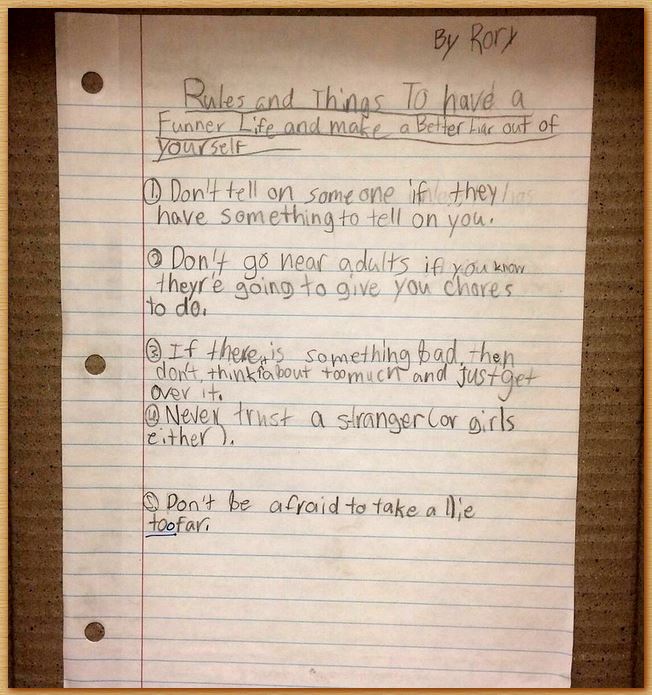 By Rory
Rules and Things To have a
Funner Life and make a Better Liar out of
yourself
① Don't tell on someone if they
have something to tell on you.
② Don't go near adults if you know
they're going to give you chores
to do.
③ If there is something bad, then
don't think about it too much and just get
over it.
④ Never trust a stranger (or girls
either).
⑤ Don't be afraid to take a lie
too far.